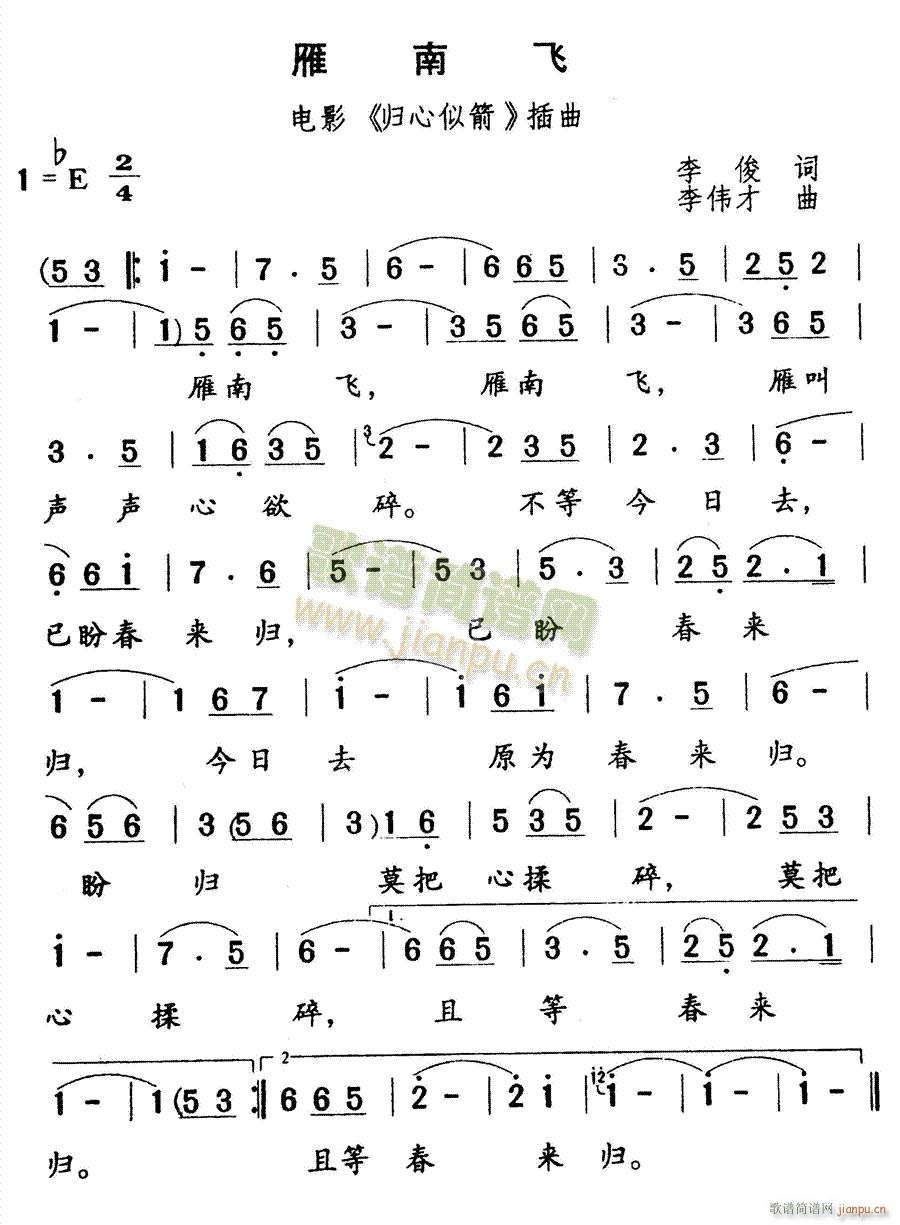 雁南飞
电影《归心似箭》插曲
1=♭E 2/4
李俊 词
李伟才 曲
(53 ‖: i - | 7 . 5 | 6 - | 665 | 3 . 5 | 25̣2 |
1 - | 1) 5̣ 6̣5̣ | 3 - | 35 65 | 3 - | 365 |
雁南飞, 雁南飞, 雁叫
3 . 5 | 16̣ 35 | ³2 - | 235 | 2 . 3 | 6̣ - |
声声心欲碎。 不等今日去,
6̣6i | 7 . 6 | 5 - | 53 | 5 . 3 | 25̣ 2 . 1 |
已盼春来归, 已盼春来
1 - | 1 67 | i - | i 6i | 7 . 5 | 6 - |
归, 今日去 原为春来归。
6 56 | 3 (56 | 3) 16̣ | 5 35 | 2 - | 2 53 |
盼归 莫把心揉碎, 莫把
i - | 7 . 5 | 6 - | 1. 665 | 3 . 5 | 25̣ 2 . 1 |
心揉碎, 且等春来
1 - | 1 (53 :‖ 2 665 | 2̇ - | 2̇ i | i2̇ i - | i - | i - ‖
归。 且等春来归。
歌谱简谱网
www.jianpu.cn
歌谱简谱网
jianpu.cn